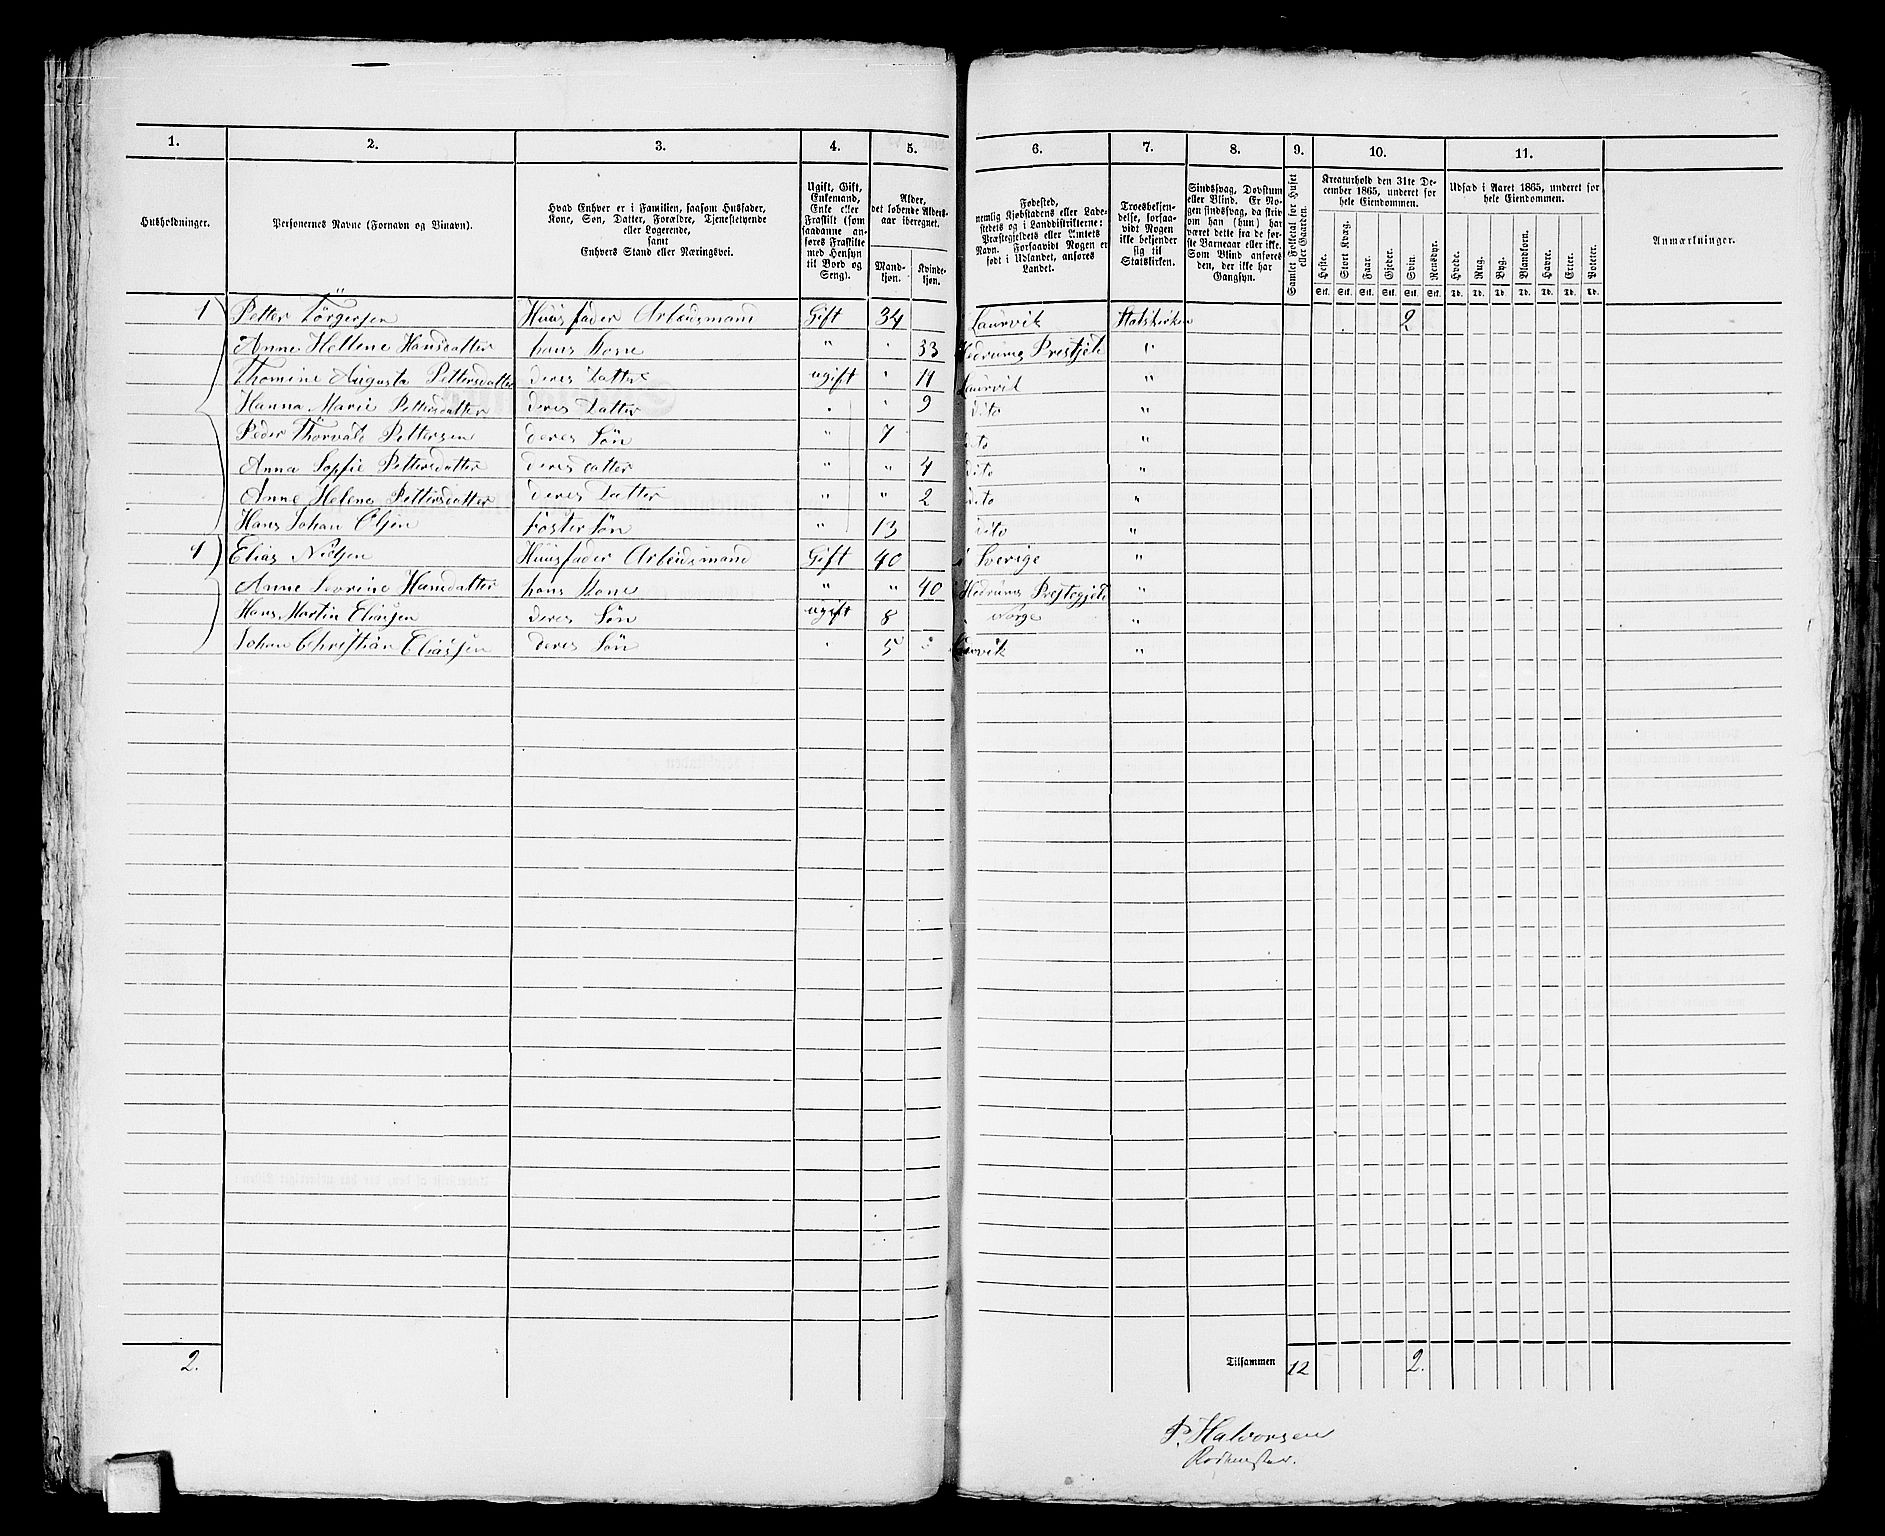 1. 2. 3. 4. 5. 6. 7. 8. 9. 10. 11.
Husholdninger.
Personernes Navne (Fornavn og Binavn).
Hvad Enhver er i Familien, saasom Husfader,
Kone, Søn, Datter, Forældre, Tjenestetyende
eller Logerende,
samt
Enhvers Stand eller Næringsvei.
Ugift, Gift,
Enkemand,
Enke eller
Fraskilt (som
saadanne an-
føres Fraskilte
med Hensyn
til Bord og
Seng).
Alder,
det løbende Alders-
aar iberegnet.
Mand-
kjøn.
Kvinde-
kjøn.
Fødested,
nemlig Kjøbstadens eller Lade-
stedets og i Landdistrikterne:
Præstegjeldets eller Amtets
Navn. Forsaavidt Nogen er
født i Udlandet, anføres
Landet.
Troesbekjen-
delse, forsaa-
vidt Nogen
ikke bekjender
sig til
Statskirken.
Sindssvag, Døvstum
eller Blind. Er No-
gen sindssvag, da skriv
om han (hun) har
været dette fra de før-
ste Barneaar eller ikke.
Som Blind anføres
den, der ikke har
Gangsyn.
Samlet Folketal for Huset
eller Gaarden.
Kreaturhold den 31te De-
cember 1865, underet for
hele Eiendommen.
Heste. Stort Kvæg. Faar. Gjeder. Svin. Rensdyr.
Stk. Stk. Stk. Stk. Stk. Stk.
Udsæd i Aaret 1865, underet for
hele Eiendommen.
Hvede. Rug. Byg. Blandkorn. Havre. Erter. Poteter.
Td. Td. Td. Td. Td. Td. Td.
Anmærkninger.
1 Petter Törgersen Huusfader Arbeidsmand Gift 34 Laurvik Statskirken 2
Anne Hellene Hansdatter hans Kone " " 33 Hedrums Prestgjeld "
Thomine Augusta Pettersdatter deres Datter ugift " 11 Laurvik "
Hanna Marie Pettersdatter deres Datter " " 9 dito "
Peder Thorvald Pettersen deres Søn " 7 dito "
Anna Sopfie Pettersdatter deres datter " " 4 dito "
Anne Helene Pettersdatter deres Datter " " 2 dito "
Hans Johan Olsen Fostersøn " 13 dito "
1 Elias Nielsen Huusfader Arbeidsmand Gift 40 i Sverige "
Anne Severine Hansdatter hans Kone " " 40 Hedrums Prestegjeld "
Hans Martin Eliassen deres Søn ugift 8 Norge "
Johan Christian Eliassen deres Søn " 5 " Laurvik "
2. Tilsammen 12 2.
P. Halvorsen
Rodemester.